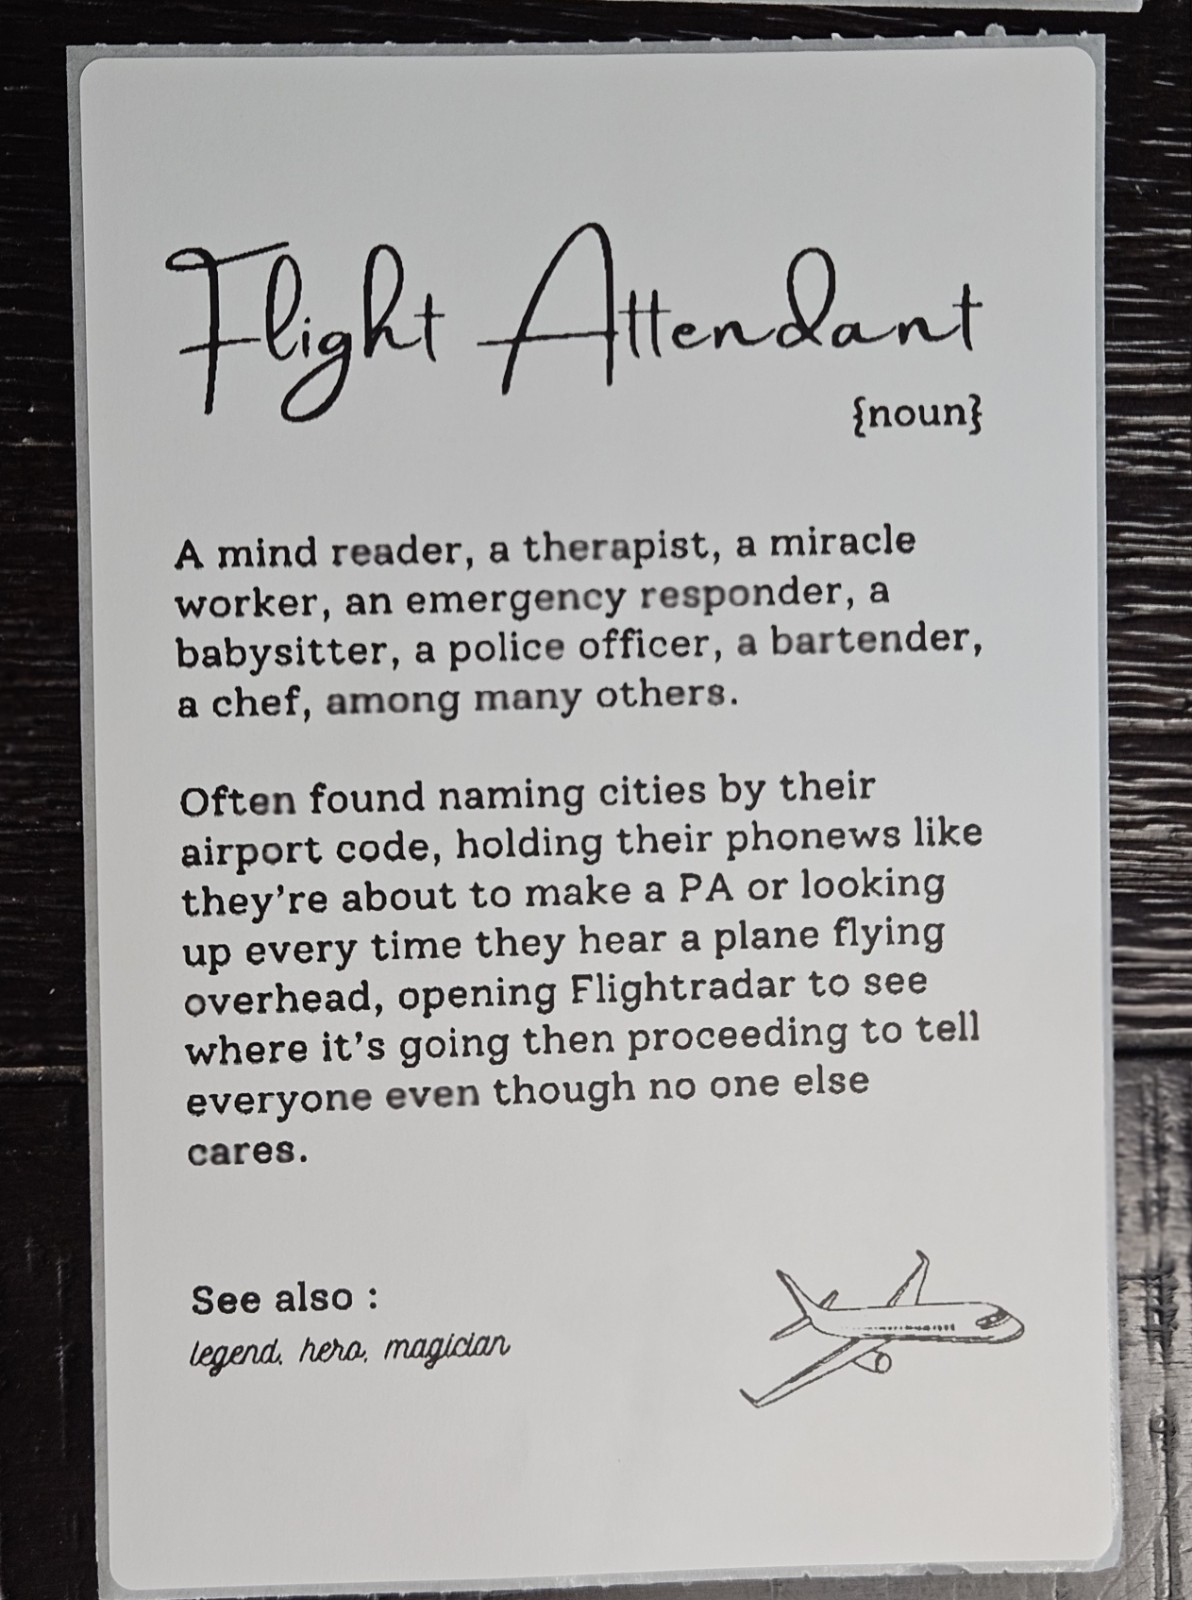 Flight Attendant
{noun}
A mind reader, a therapist, a miracle
worker, an emergency responder, a
babysitter, a police officer, a bartender,
a chef, among many others.
Often found naming cities by their
airport code, holding their phonews like
they're about to make a PA or looking
up every time they hear a plane flying
overhead, opening Flightradar to see
where it's going then proceeding to tell
everyone even though no one else
cares.
See also :
legend, hero, magician